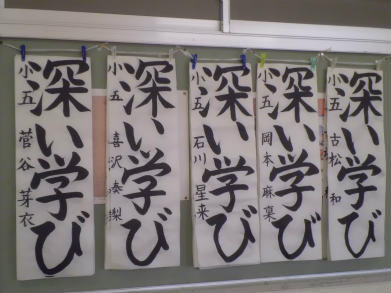 深い学び
小五 古松 和
深い学び
小五 岡本 麻稟
深い学び
小五 石川 星来
深い学び
小五 喜沢 湊梨
深い学び
小五 菅谷 芽衣